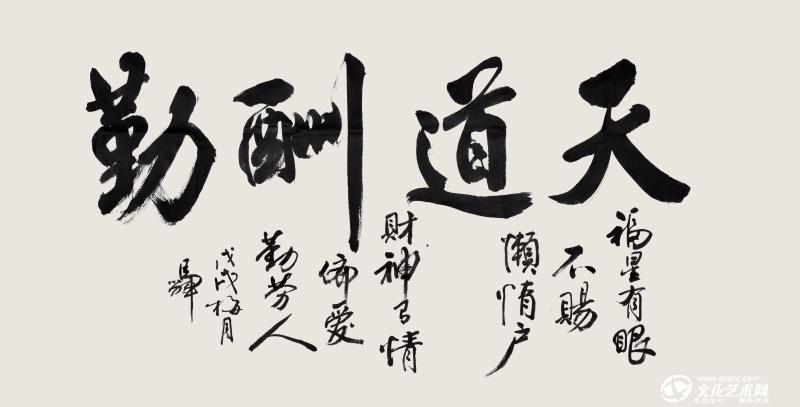 天道酬勤
福星有眼
不賜
懶惰户
財神有情
偏爱
勤劳人
戊戌梅月
www.orgcc.com
文化艺术网